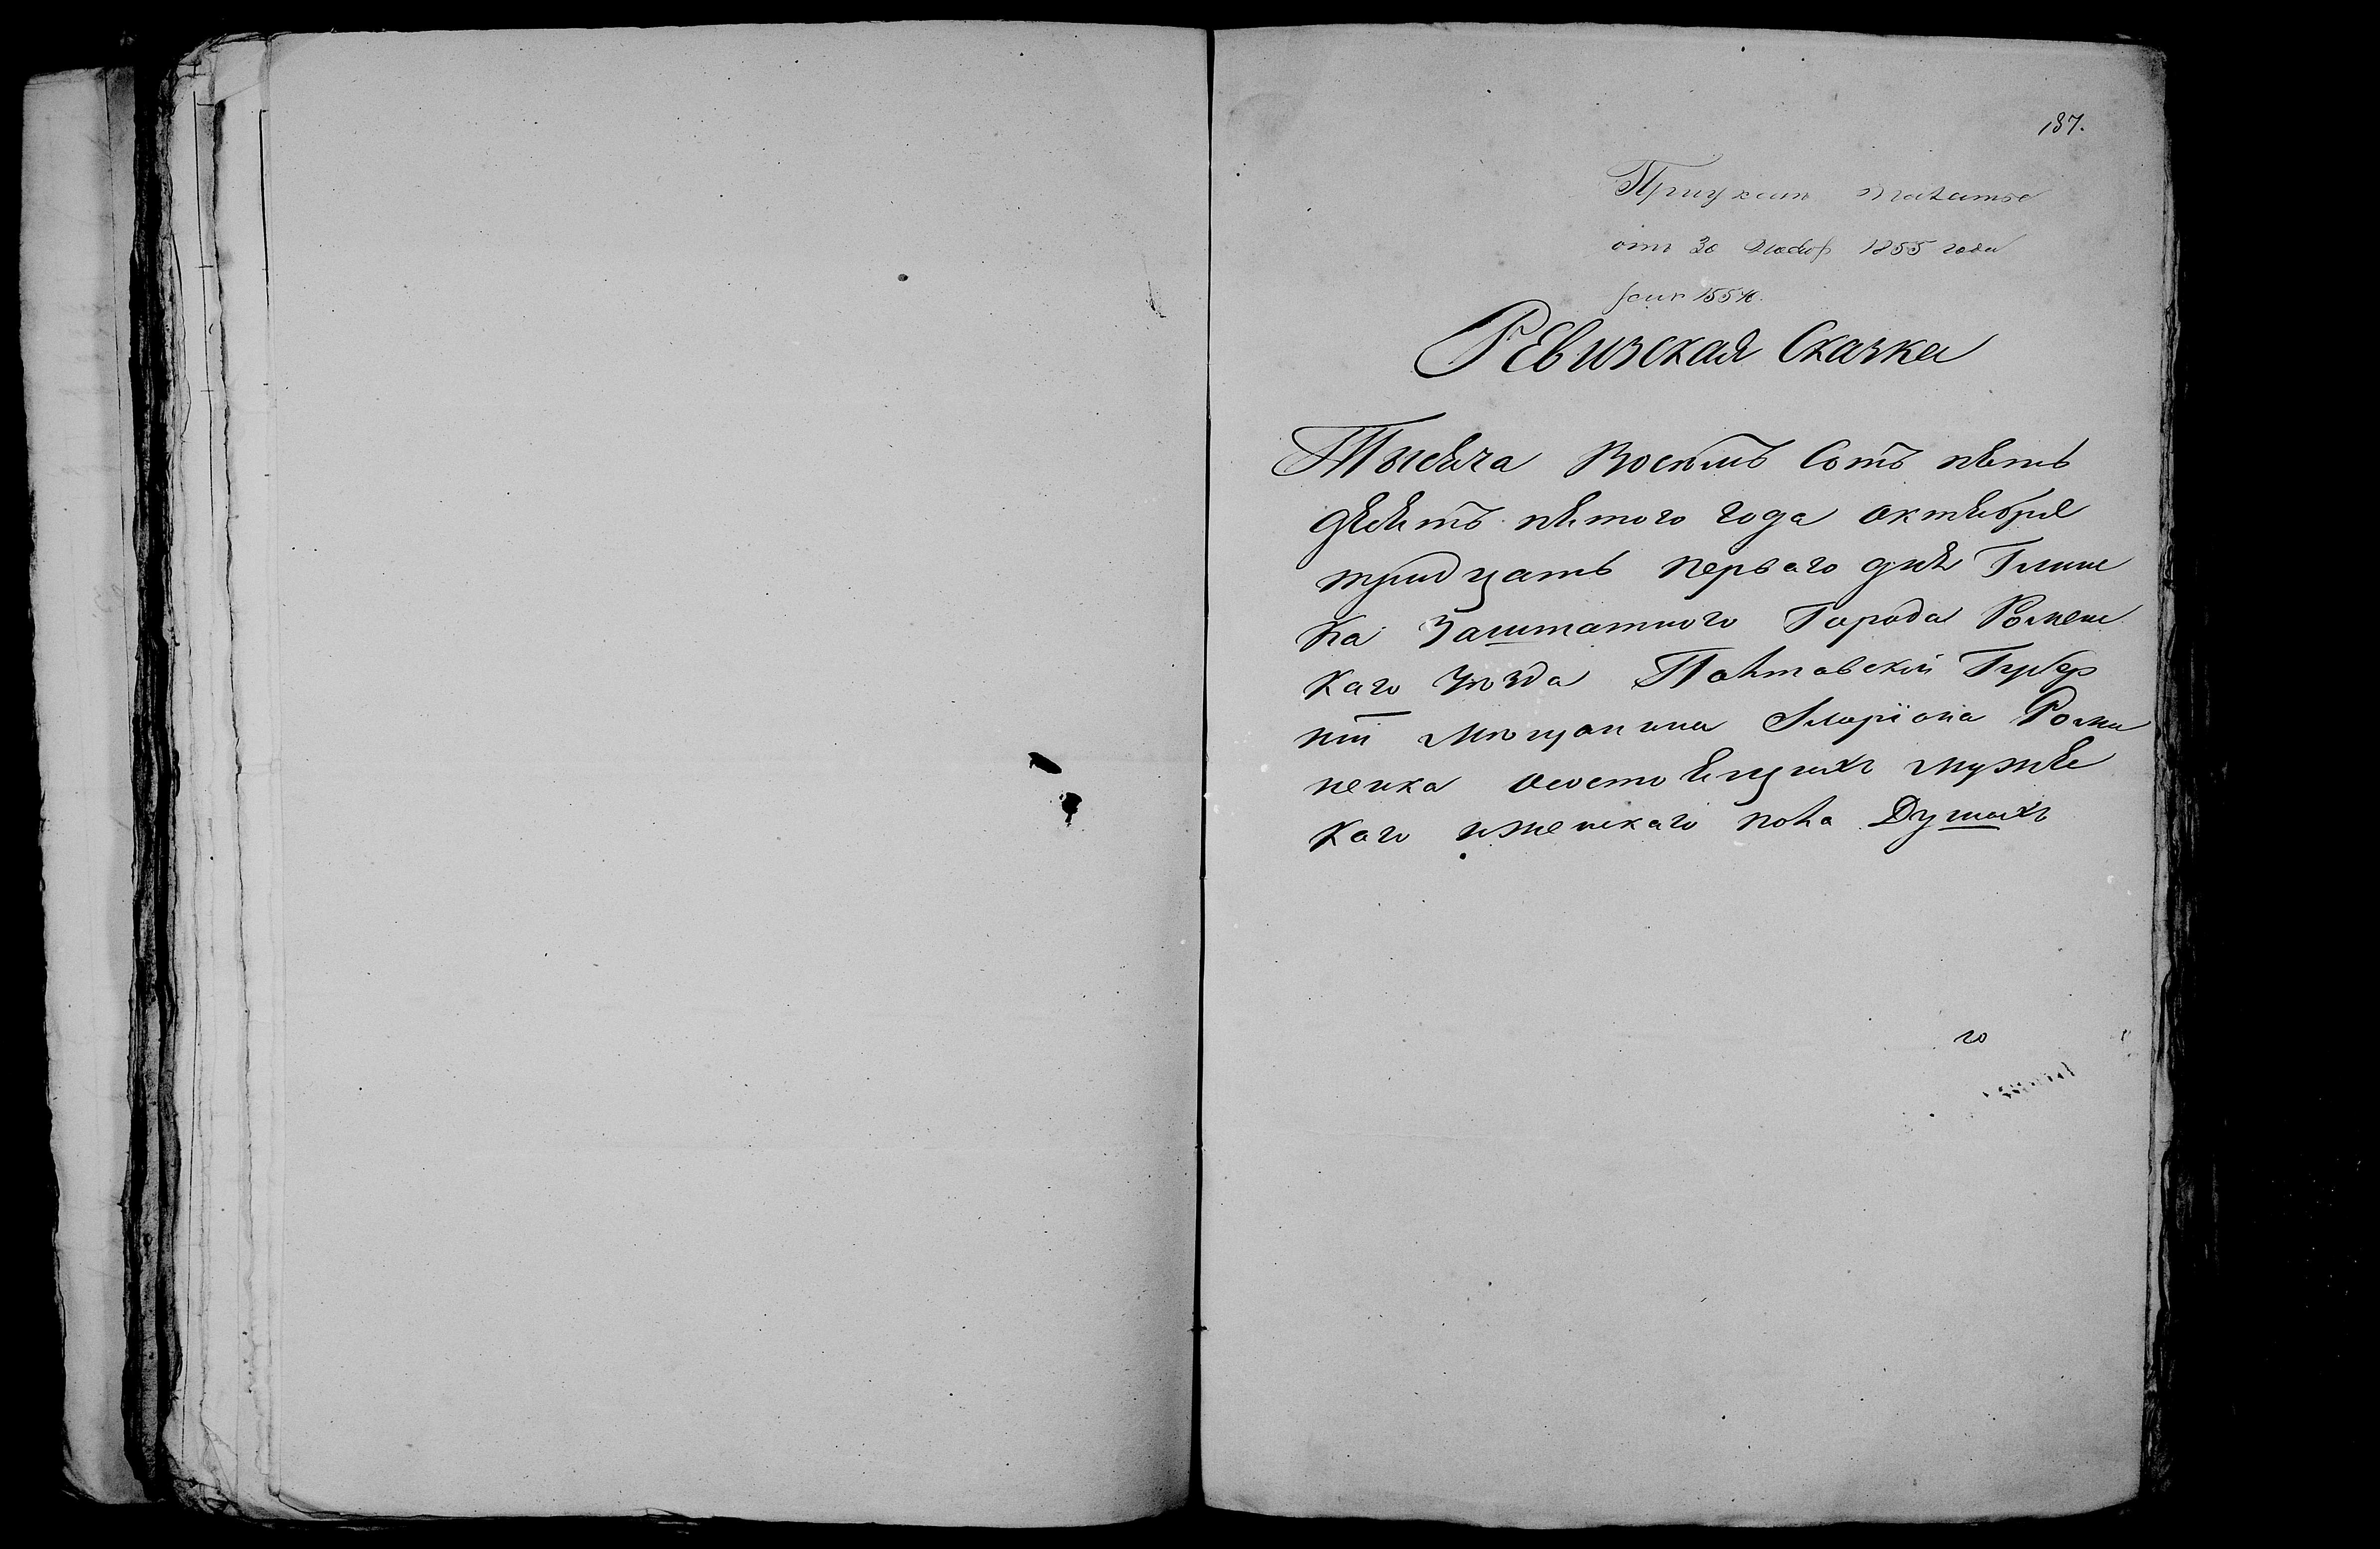 187.
При указе палаты
от 30 Декбр 1855 года
за № 15540.
Ревизская Сказка
Тысяча Восемъ Сотъ пять
десятъ пятого года октября
тридцать перваго дня Глинс
ка Заштатного Города Роменс
каго Уѣзда Полтавской Губер
ніи Мѣщанина Иларіона Рома
ненка осостоящихъ мужес
каго иженскаго пола Душахъ
го